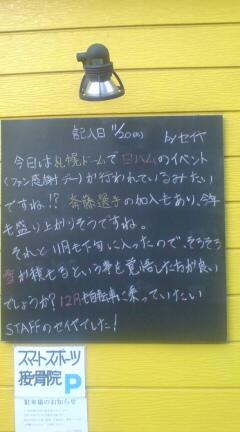 記入日 11/20(日) by セイヤ
今日は札幌ドームで日ハムのイベント
(ファン感謝デー)が行われているみたい
ですね!? 斎藤選手の加入もあり、今年
も盛り上がりそうですね。
それと11月も下旬に入ったので、そろそろ
雪が積もるという事を覚悟した方が良い
でしょうか? 12月も自転車に乗っていたい
STAFFのセイヤでした!
スマートスポーツ
接骨院 P
駐車場のお知らせ